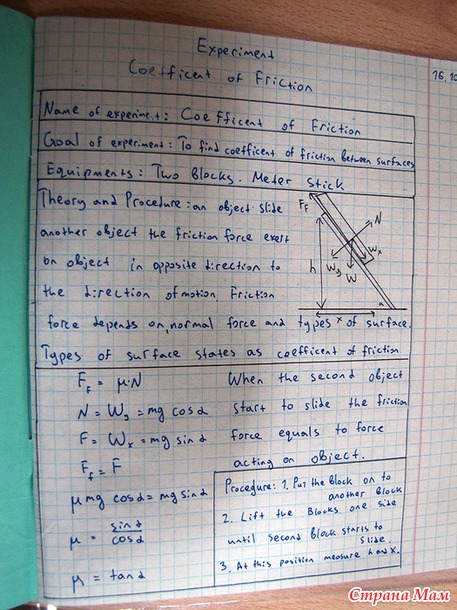 Experiment
16.10
Coefficent of Friction
Name of experiment: Coefficent of Friction
Goal of experiment: To find coefficent of friction between surfaces
Equipments: Two Blocks. Meter Stick
Theory and Procedure: an object slide
another object the friction force exert
on object in opposite direction to
the direction of motion. Friction
force depends on, normal force and types of surface.
Types of surface states as coefficent of friction
F_F
N
W_x
W_y
W
h
x
α
F_F = μ·N
When the second object
N = W_y = mg cosα
start to slide the friction
F = W_x = mg sinα
force equals to force
F_F = F
acting on object.
μmg cosα = mg sinα
μ = sinα / cosα
μ = tanα
Procedure: 1. Put the Block on to
another Block
2. Lift the Blocks one side
until second Block starts to
slide.
3. At this position measure h and x.
Страна Мам